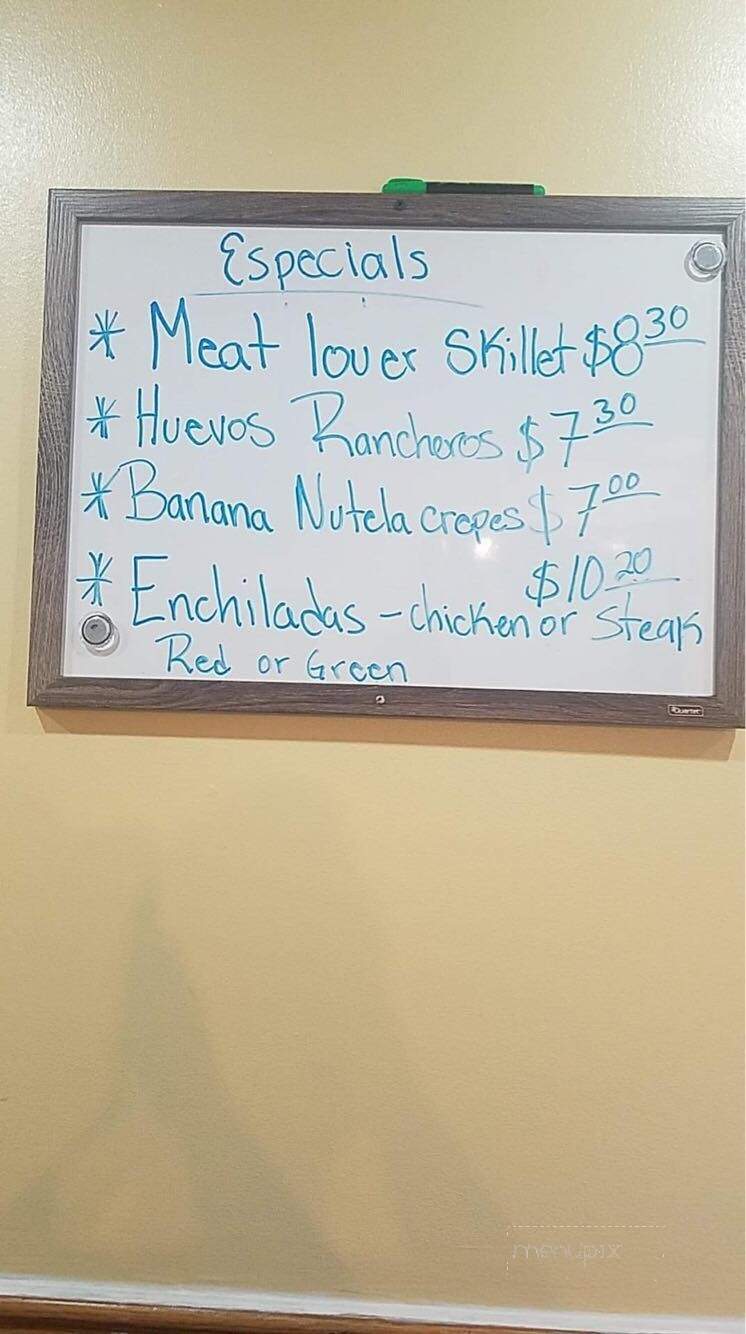 Especials
* Meat lover Skillet $8 30
* Huevos Rancheros $7 30
* Banana Nutela crepes $7 00
* Enchiladas - chicken or steak $10 20
Red or Green
Quartet
menupix